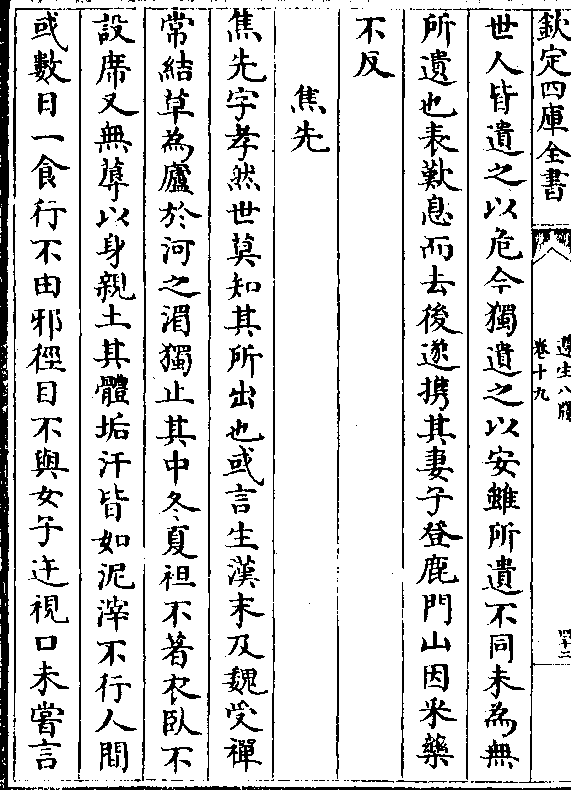 欽定四庫全書
遵生八牋
卷十九
四十二
世人皆遺之以危今獨遺之以安雖所遺不同未為無
所遺也表歎息而去後遂携其妻子登鹿門山因采藥
不反
焦先
焦先字孝然世莫知其所出也或言生漢末及魏受禪
常結草為廬於河之湄獨止其中冬夏袒不著衣臥不
設席又無蓐以身親土其體垢汗皆如泥滓不行人間
或數日一食行不由邪徑目不與女子迕視口未嘗言